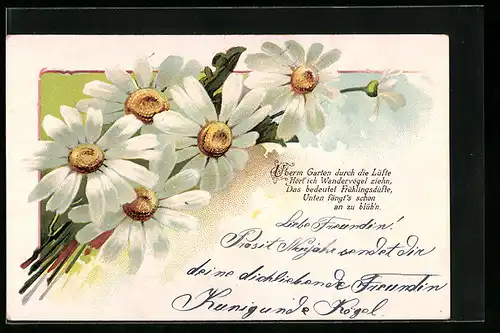 Überm Garten durch die Lüfte
Hört' ich Wandervögel ziehn,
Das bedeutet Frühlingsdüfte,
Unten fängt's schon
an zu blüh'n.
Liebe Freundin!
Prosit Neujahr sendet dir
deine dichliebende Freundin
Kunigunde Kögel.